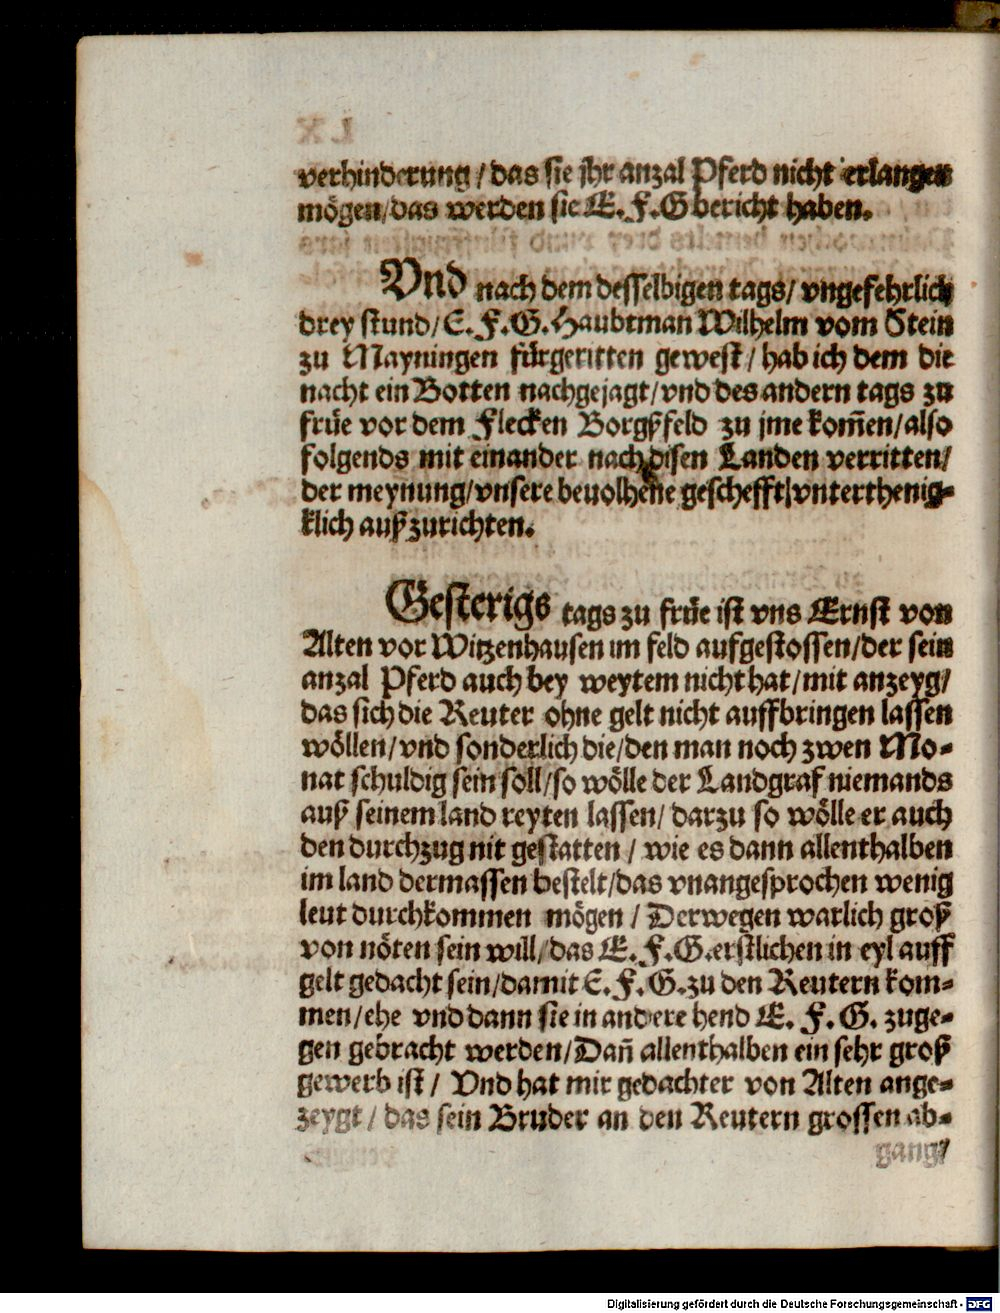 verhinderung / das sie jhr anzal Pferd nicht erlangen
mögen / das werden sie E. F. G bericht haben.
Vnd nach dem desselbigen tags / vngefehrlich
drey stund / E. F. G. Haubtman Wilhelm vom Stein
zu Mayningen fürgeritten gewest / hab ich dem die
nacht ein Botten nachgejagt / vnd des andern tags zu
früe vor dem Flecken Borgßfeld zu jme kom̃en / also
folgends mit einander nach disen Landen verritten /
der meynung / vnsere beuolhene geschefft vnterthenig-
klich außzurichten.
Gesterigs tags zu früe ist vns Ernst von
Alten vor Witzenhausen im feld aufgestossen / der sein
anzal Pferd auch bey weytem nicht hat / mit anzeyg /
das sich die Reuter ohne gelt nicht auffbringen lassen
wöllen / vnd sonderlich die / den man noch zwen Mo-
nat schuldig sein soll / so wölle der Landgraf niemands
auß seinem land reyten lassen / darzu so wölle er auch
den durchzug nit gestatten / wie es dann allenthalben
im land dermassen bestelt / das vnangesprochen wenig
leut durchkommen mögen / Derwegen warlich groß
von nöten sein will / das E. F. G. erstlichen in eyl auff
gelt gedacht sein / damit E. F. G. zu den Reutern kom-
men / ehe vnd dann sie in andere hend E. F. G. zuge-
gen gebracht werden / Dan̄ allenthalben ein sehr groß
gewerb ist / Vnd hat mir gedachter von Alten ange-
zeygt / das sein Bruder an den Reutern grossen ab-
gang /
Digitalisierung gefördert durch die Deutsche Forschungsgemeinschaft - DFG